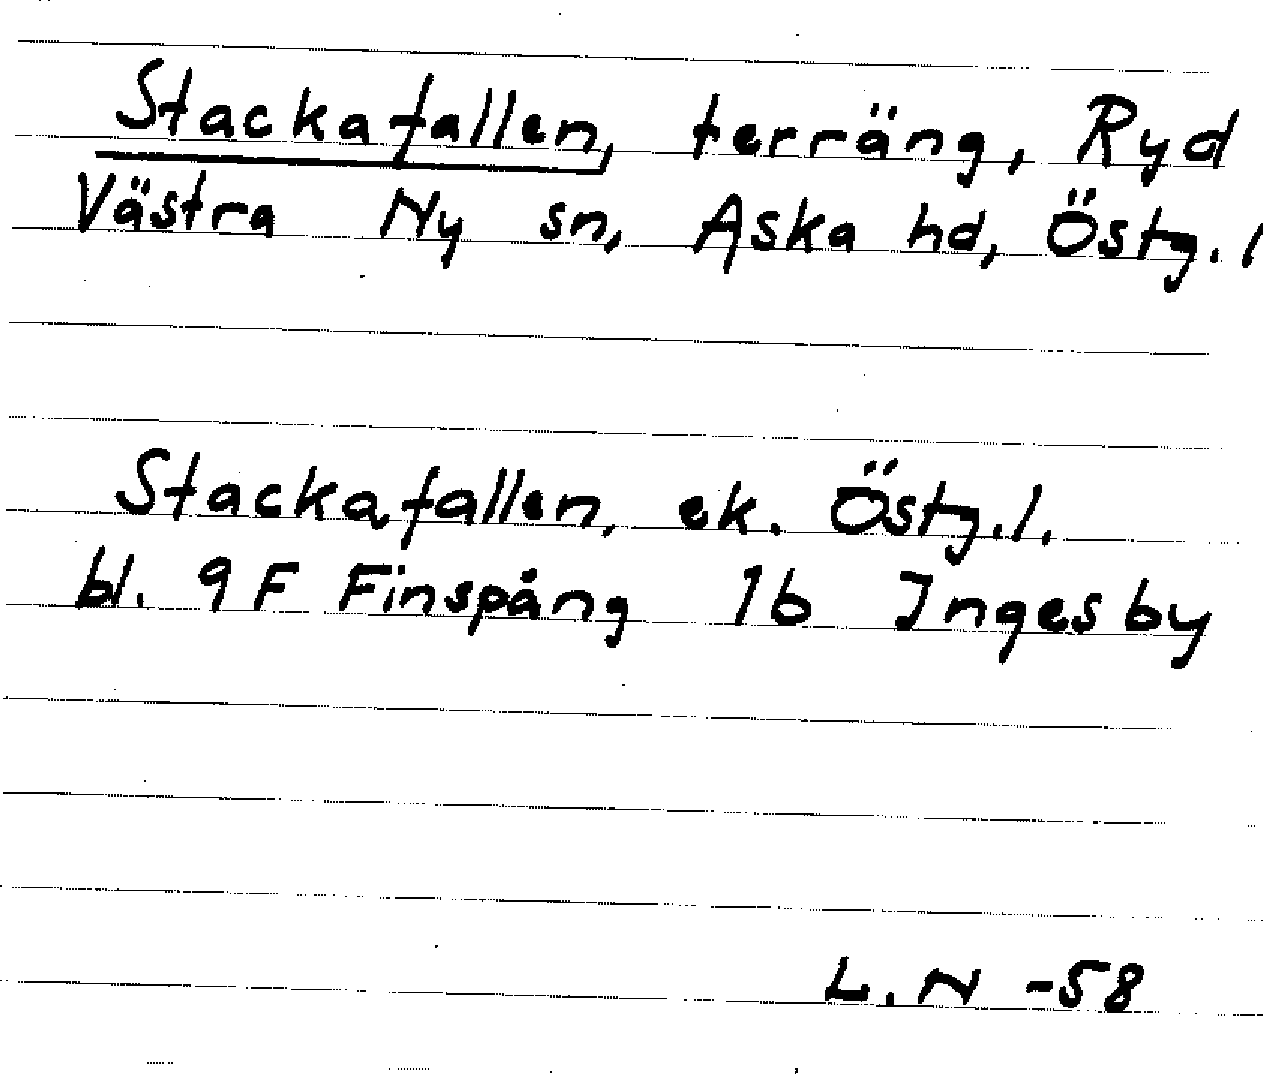 Stackafallen, terräng, Ryd
Västra Ny sn, Aska hd, Östg. l
Stackafallen, ek. Östg.l.
bl. 9F Finspång 1b Ingesby
L.N -58